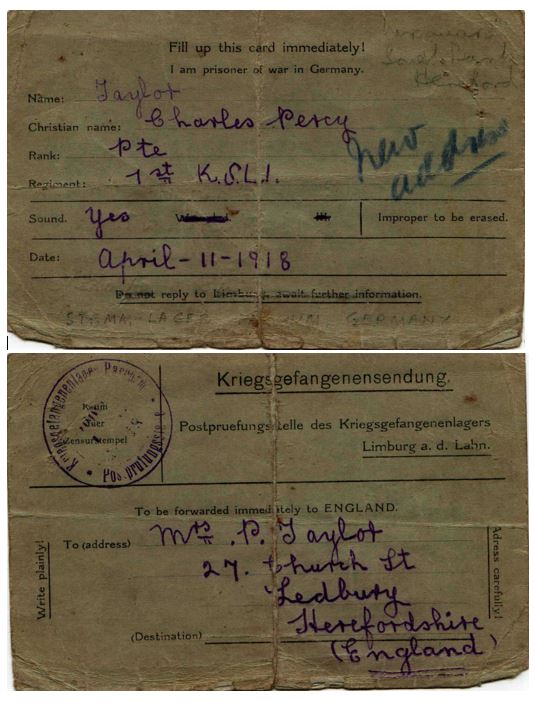 Hereford
Fill up this card immediately!
I am prisoner of war in Germany.
Name: Taylor
Christian name: Charles Percy
Rank: Pte
Regiment: 1st K.S.L.I.
new
address
Sound. Yes Improper to be erased.
Date: April-11-1918
Do not reply to Limburg, await further information.
LAGER GERMANY
Kriegsgefangenensendung.
Kriegsgefangenenlager Parchim
Raum
Zensurstempel
Postprüfungsstelle
Postpruefungsstelle des Kriegsgefangenenlagers
Limburg a. d. Lahn.
To be forwarded immediately to ENGLAND.
To (address) Mrs. P. Taylor
27. Church St
Ledbury
Herefordshire
(Destination) (England)
Write plainly!
Adress carefully!